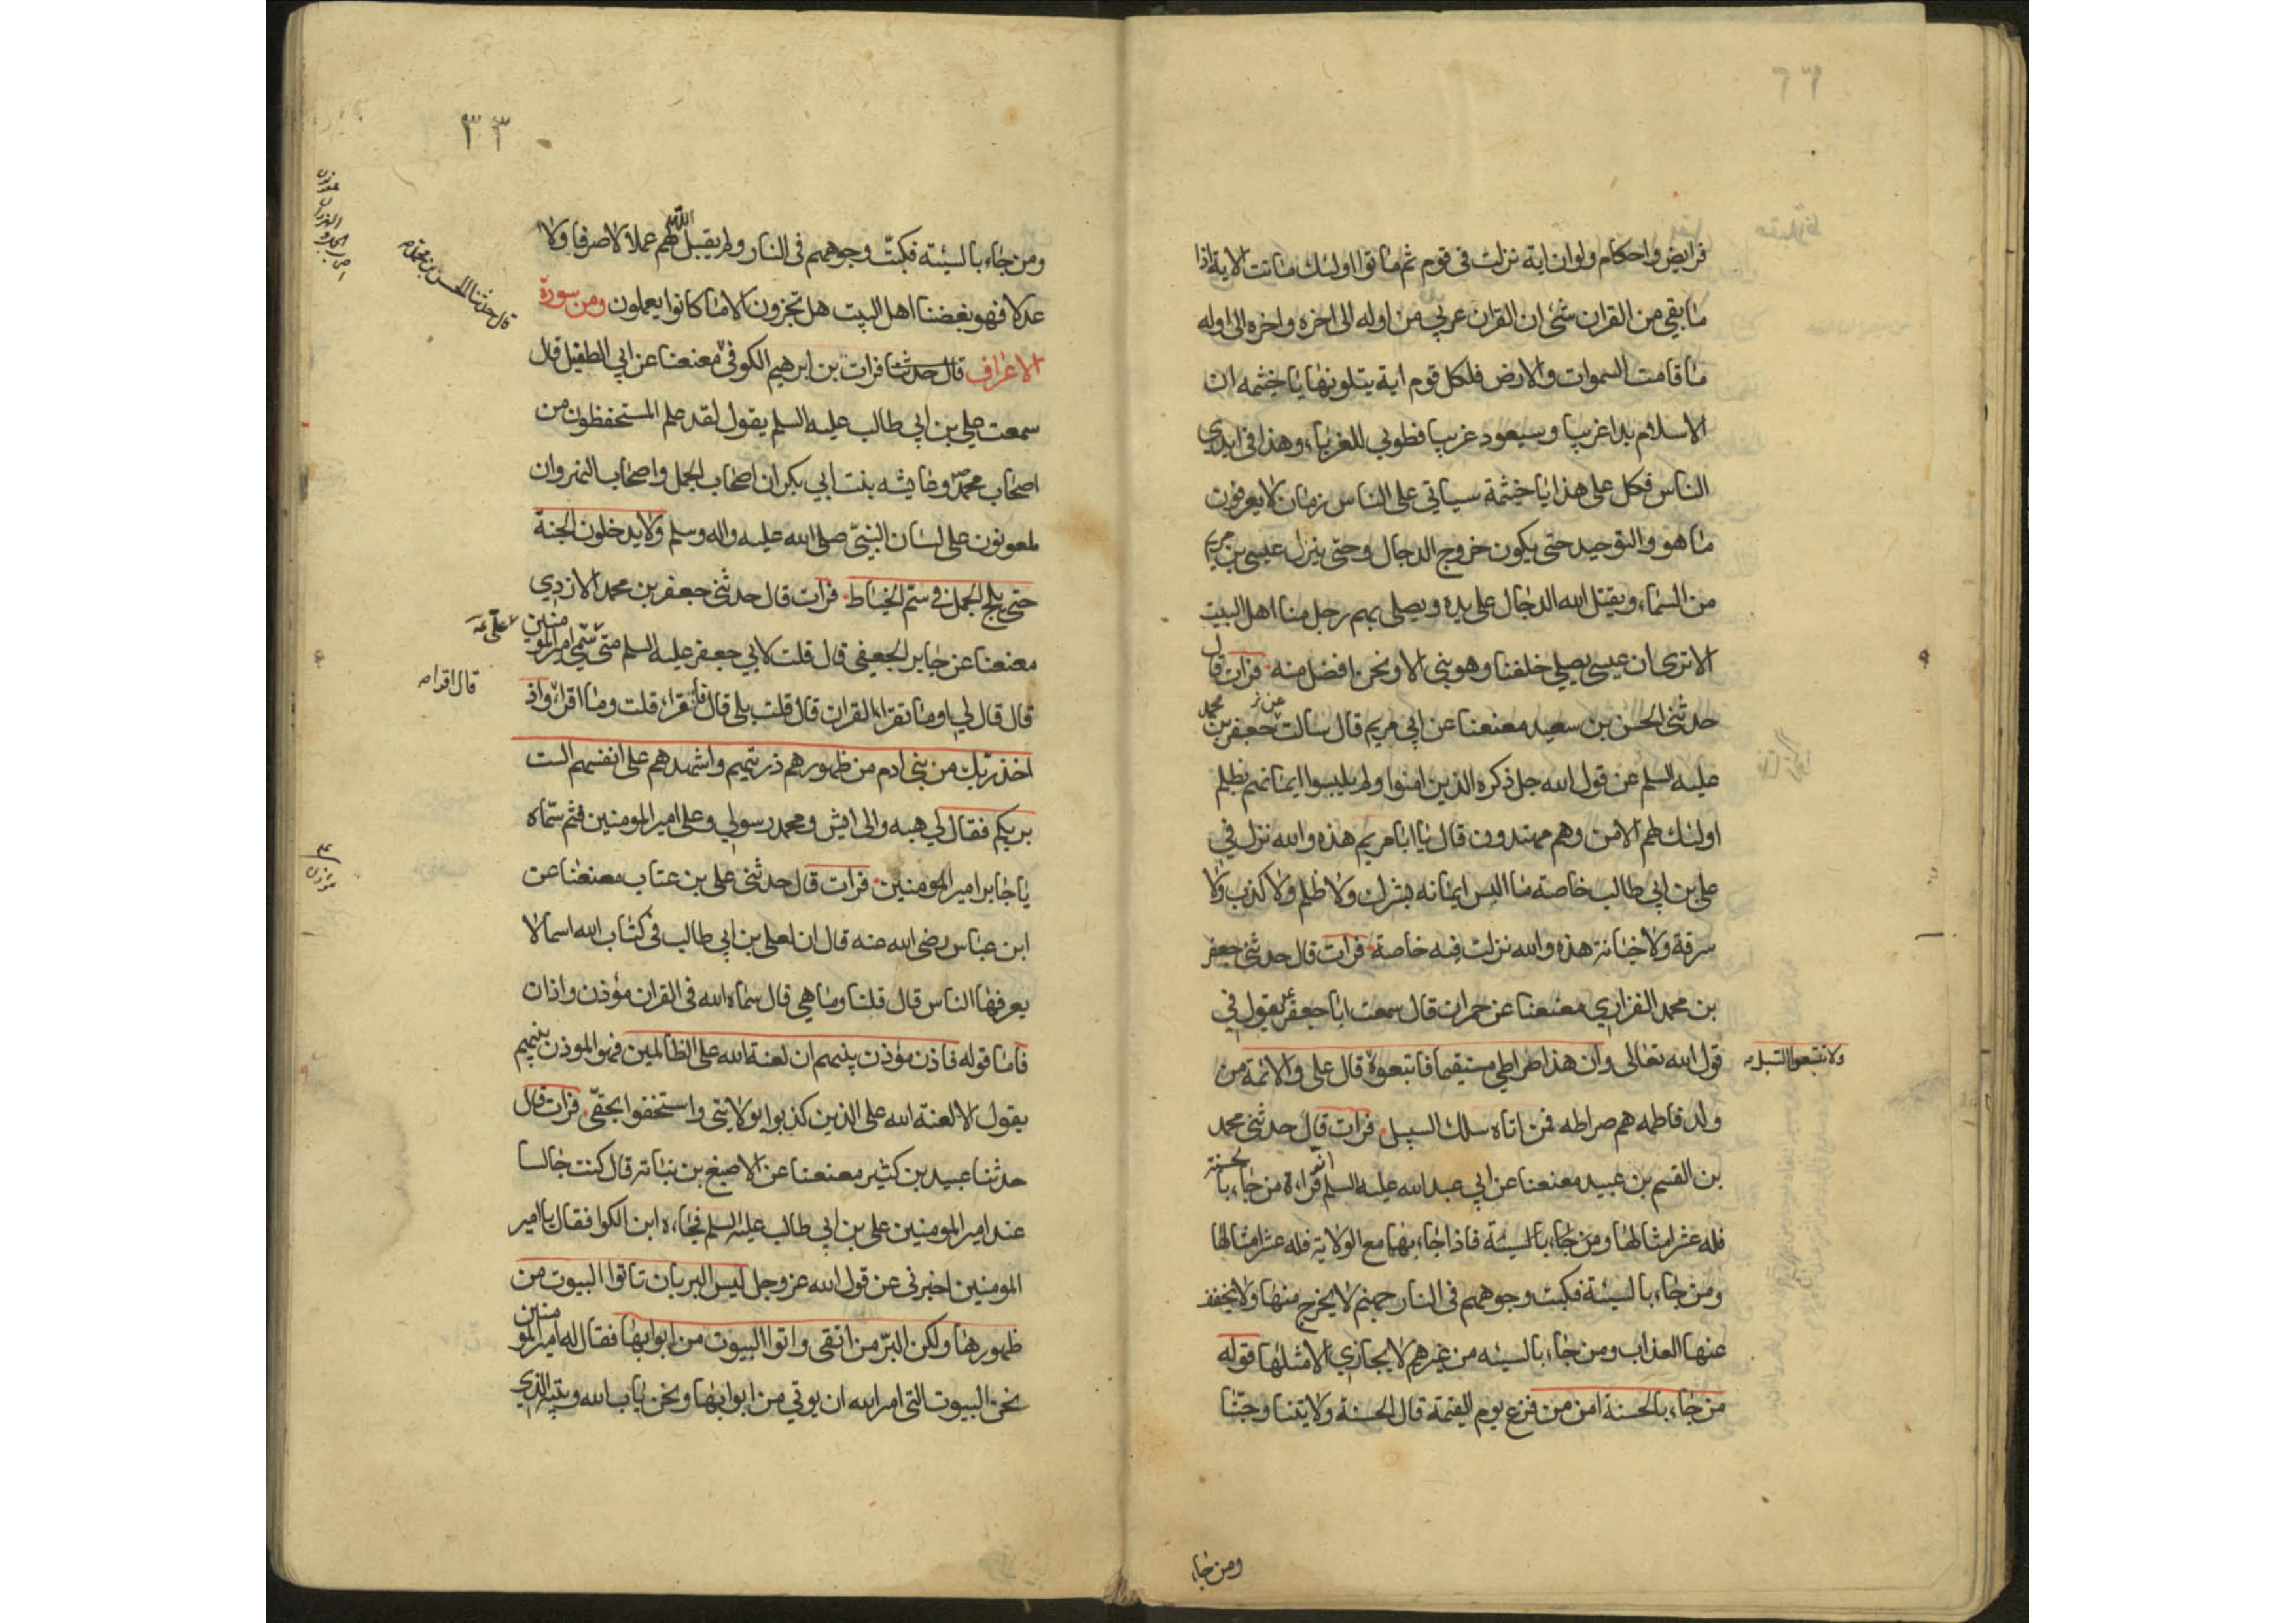 فرايض واحكام ولو ان اية نزلت فى قوم ثم ماتوا اولئك ماتت الاية اذا
ما بقي من القران شئ ان القران عربي من اوله الى اخره واخره الى اوله
ما قامت السموات والارض فلكل قوم اية يتلونها يا خيثمه ان
الاسلام بدا غريبا وسيعود غريبا فطوبي للغرباء وهذا فى ايدي
الناس فكل على هذا يا خيثمة سياتي على الناس زمان لا يعرفون
ما هو والتوحيد حتى يكون خروج الدجال وحتى ينزل عيسى بن مريم
من السماء ويقتل الله الدجال على يده ويصلى بهم رجل منا اهل البيت
الا ترى ان عيسى يصلي خلفنا وهو بنى الا ونحن افضل منه فرات قال
حدثنى الحسن بن سعيد معنعنا عن ابي مريم قال سالت جعفر بن محمد
عليه السلم عن قول الله جل ذكره الذين امنوا ولم يلبسوا ايمانهم بظلم
اولئك لهم الامن وهم مهتدون قال يا ابا مريم هذه والله نزل في
على بن ابي طالب خاصة ما البس ايمانه بشرك ولا ظلم ولا كذب ولا
سرقة ولا خيانة هذه والله نزلت فيه خاصة فرات قال حدثنى جعفر
بن محمد الفزاري معنعنا عن حمران قال سمعت ابا جعفر ع يقول في
قول الله تعالى وان هذا صراطي مستقيما فاتبعوه قال على والائمة من
ولا تتبعوا السبل
ولد فاطمه هم صراطه فمن اتاه سلك السبيل فرات قال حدثنى محمد
بن القسم بن عبيد معنعنا عن ابي عبد الله عليه السلم انه قراءة من جاء بالحسنة
فله عشر امثالها ومن جاء بالسيئة فاذا جاء بها مع الولاية فله عشر امثالها
ومن جاء بالسيئة فكبت وجوههم فى النار جهنم لا يخرج منها ولا يخفف
عنها العذاب ومن جاء بالسيئه من غيرهم لا يجازي الا مثلها قوله
من جاء بالحسنة امن من فزع يوم القيمة قال الحسنة ولايتنا وحبنا
ومن جاء
٣٣
ومن جاء بالسيئة فكبت وجوههم فى النار ولم يقبل الله لهم عملا لا صرفا ولا
عدلا فهو بغضنا اهل البيت هل تجزون الا ما كانوا يعملون ومن سورة
الاعراف قال حدثنا فرات بن ابرهيم الكوفى معنعنا عن ابي الطفيل قال
قال حدثنا الحسن بن محمد
سمعت علي بن ابي طالب عليه السلم يقول لقد علم المستحفظون من
اصحاب محمد ص وعايشه بنت ابي بكر ان اصحاب الجمل واصحاب النهروان
ملعونون على لسان النبيّ صلى الله عليه واله وسلم ولا يدخلون الجنة
حتى يلج الجمل في سمّ الخياط فرات قال حدثنى جعفر بن محمد الازدي
معنعنا عن جابر الجعفي قال قلت لابي جعفر عليه السلم متى سمّي امير المومنين
قال قال لي او ما تقرا القران قال قلت بلى قال فاقراء قلت وما اقرا واذ
قال اقرا
اخذ ربك من بنى ادم من ظهورهم ذريتهم واشهدهم على انفسهم الست
بربكم فقال لي هيه والى ايش ومحمد رسولي وعلى امير المومنين فثم سمّاه
يا جابر امير المومنين فرات قال حدثنى على بن عتاب معنعنا عن
ابن عباس رضى الله عنه قال ان لعلى بن ابي طالب فى كتاب الله اسما لا
يعرفها الناس قال قلنا وما هي قال سماه الله فى القران مؤذن واذان
فاما قوله فاذن مؤذن بينهم ان لعنة الله على الظالمين فهو الموذن بينهم
يقول الا لعنة الله على الذين كذبوا بولايتى واستخفوا بحقّى فرات قال
حدثنا عبيد بن كثير معنعنا عن الاصبغ بن نباته قال كنت جالسا
عند امير المومنين على بن ابي طالب عليه السلم فجاءه ابن الكوا فقال يا امير
المومنين اخبرنى عن قول الله عز وجل ليس البر بان تاتوا البيوت من
ظهورها ولكن البرّ من اتقى واتوا البيوت من ابوابها فقال له امير المومنين
نحن البيوت التى امر الله ان يوتي من ابوابها ونحن باب الله وبيته الذي